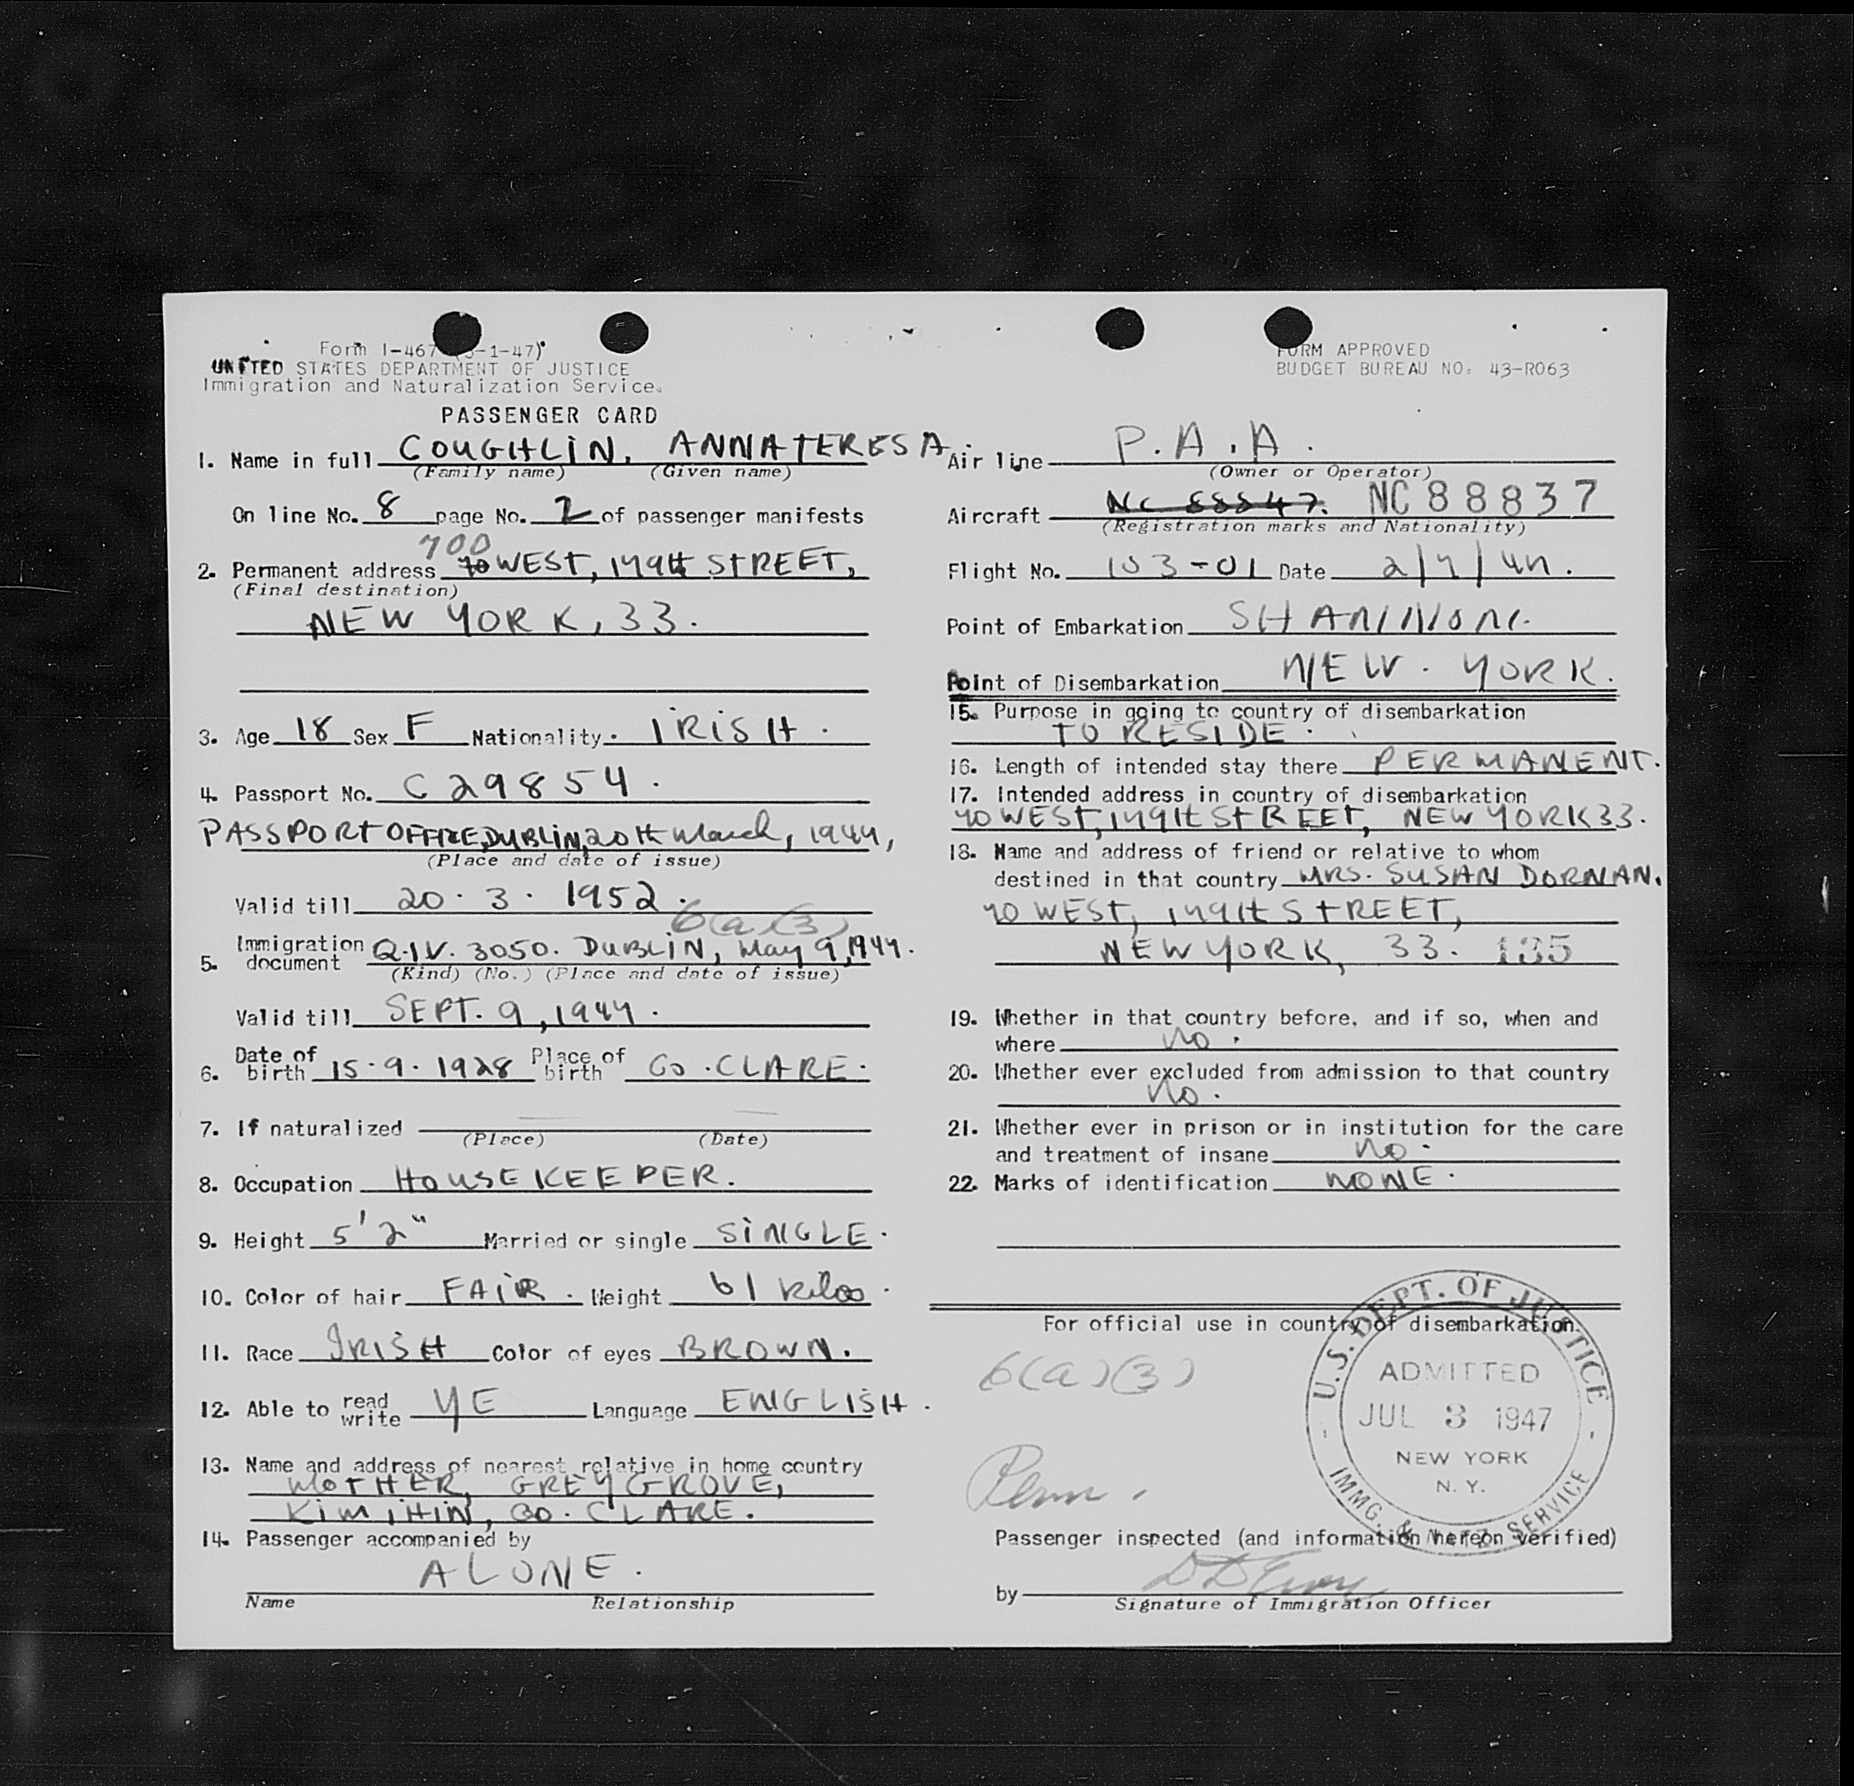 Form I-467 (5-1-47)
UNITED STATES DEPARTMENT OF JUSTICE
Immigration and Naturalization Service.
PASSENGER CARD
1. Name in full COUGHLIN, ANNA TERESA
(Family name) (Given name)
On line No. 8 page No. 2 of passenger manifests
700
2. Permanent address 70 WEST, 179th STREET,
(Final destination)
NEW YORK, 33.
3. Age 18 Sex F Nationality. IRISH.
4. Passport No. C29854.
PASSPORT OFFICE, DUBLIN, 20th March, 1947,
(Place and date of issue)
Valid till 20.3.1952.
6(a)(3)
5. Immigration document Q.I.V. 3050. DUBLIN, May 9, 1947.
(Kind) (No.) (Place and date of issue)
Valid till SEPT. 9, 1947.
6. Date of birth 15.9.1928 Place of birth Co. CLARE.
7. If naturalized
(Place) (Date)
8. Occupation HOUSEKEEPER.
9. Height 5'2" Married or single SINGLE.
10. Color of hair FAIR. Weight 61 Kilos.
11. Race IRISH Color of eyes BROWN.
12. Able to read write YE Language ENGLISH.
13. Name and address of nearest relative in home country
MOTHER, GREYGROVE,
KIMIHIN, CO. CLARE.
14. Passenger accompanied by
ALONE.
Name Relationship
FORM APPROVED
BUDGET BUREAU NO. 43-R063
Air line P.A.A.
(Owner or Operator)
Aircraft NC 88847. NC88837
(Registration marks and Nationality)
Flight No. 103-01 Date 2/7/47.
Point of Embarkation SHANNON.
Point of Disembarkation NEW. YORK.
15. Purpose in going to country of disembarkation
TO RESIDE.
16. Length of intended stay there PERMANENT.
17. Intended address in country of disembarkation
70 WEST, 179th STREET, NEW YORK 33.
18. Name and address of friend or relative to whom
destined in that country MRS. SUSAN DORNAN.
70 WEST, 179th STREET,
NEW YORK, 33. 135
19. Whether in that country before, and if so, when and
where No.
20. Whether ever excluded from admission to that country
No.
21. Whether ever in prison or in institution for the care
and treatment of insane No.
22. Marks of identification NONE.
For official use in country of disembarkation.
6(a)(3)
Perm.
U.S. DEPT. OF JUSTICE
ADMITTED
JUL 3 1947
NEW YORK
N. Y.
IMMG. & NATZ. SERVICE
Passenger inspected (and information hereon verified)
by
Signature of Immigration Officer